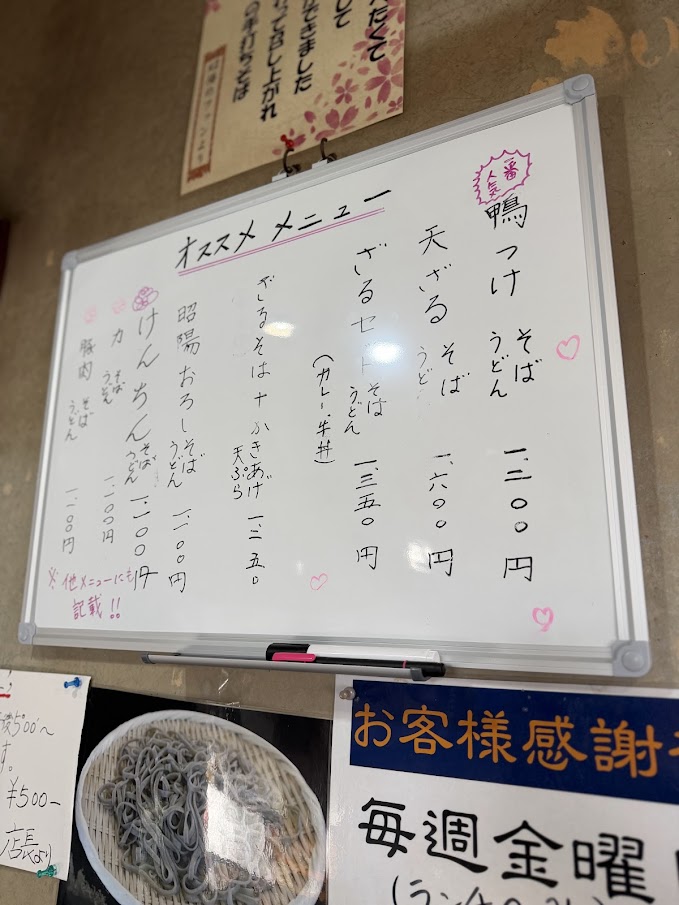 たくて
して
できました
って召し上がれ
の手打ちそば
昭陽のファンより
オススメ メニュー
一番人気
鴨つけ そば うどん 円
天ざる そば うどん 一、六〇〇円
ざるセット そば うどん 一、三五〇円
(カレー、牛丼)
ざるそば+かきあげ天ぷら
昭陽おろし そば うどん 一、一〇〇円
けんちん そば うどん 一、一〇〇円
力 そば うどん 一、一〇〇円
豚肉 そば うどん 一、一〇〇円
※他メニューにも
記載!!
500〜
す。
¥500-
店長より
お客様感謝
毎週金曜
(ランチ